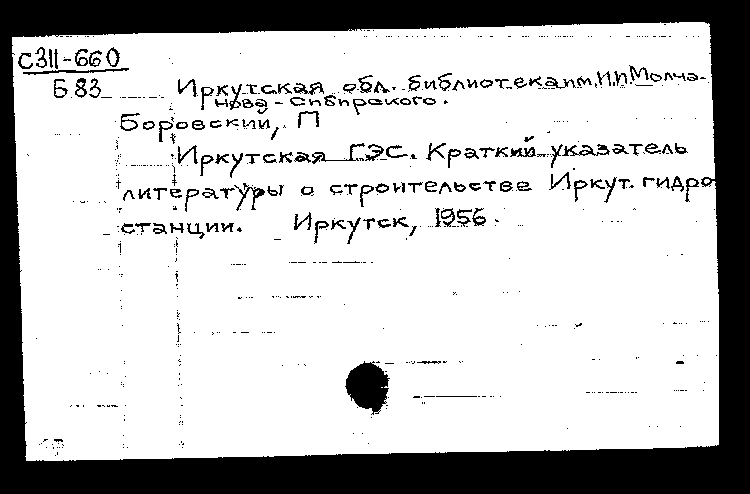 С311-660
Б 83
Иркутская обл. библиотека им. И.И. Молча-
нова-Сибирского.
Боровский, П
Иркутская ГЭС. Краткий указатель
литературы о строительстве Иркут. гидро
станции. Иркутск, 1956.